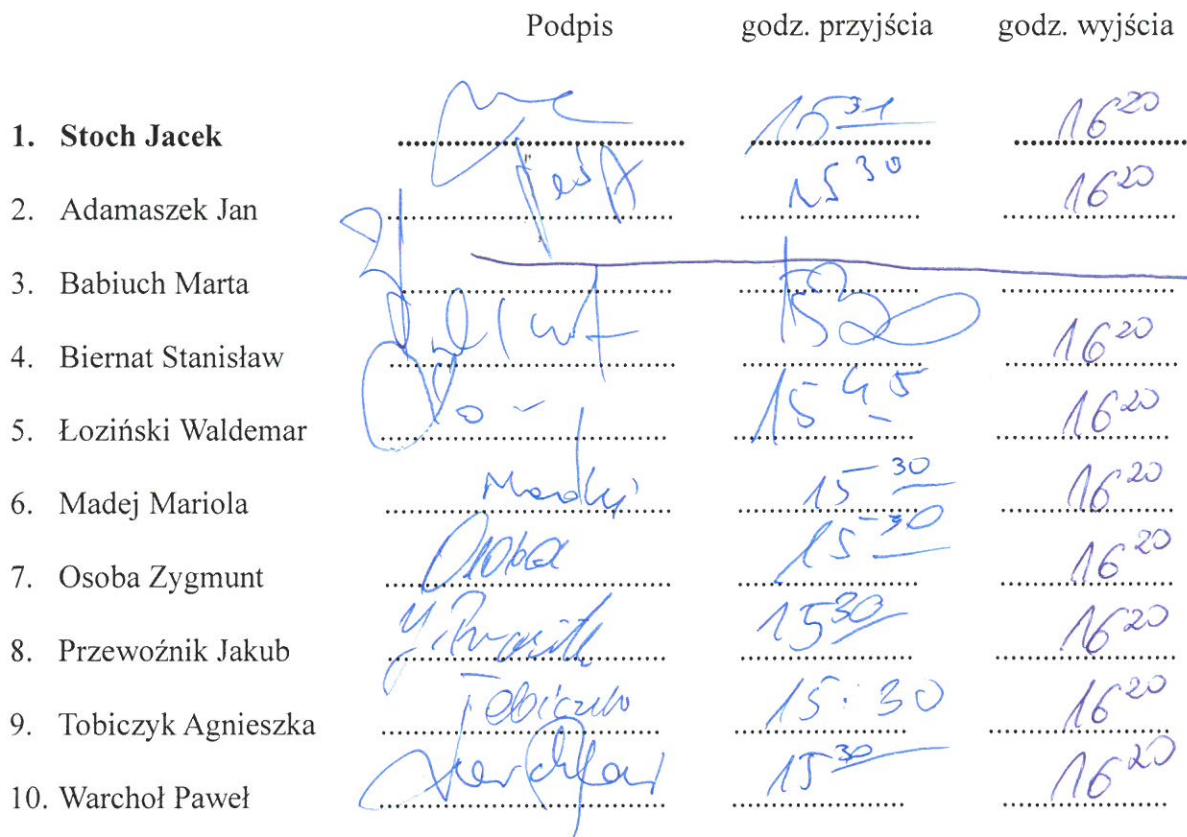 Podpis godz. przyjścia godz. wyjścia
1. Stoch Jacek 15 31 16 20
2. Adamaszek Jan 15 30 16 20
3. Babiuch Marta
4. Biernat Stanisław 15 30 16 20
5. Łoziński Waldemar 15 45 16 20
6. Madej Mariola Madej 15 30 16 20
7. Osoba Zygmunt Osoba 15 30 16 20
8. Przewoźnik Jakub 15 30 16 20
9. Tobiczyk Agnieszka Tobiczyk 15:30 16 20
10. Warchoł Paweł 15 30 16 20